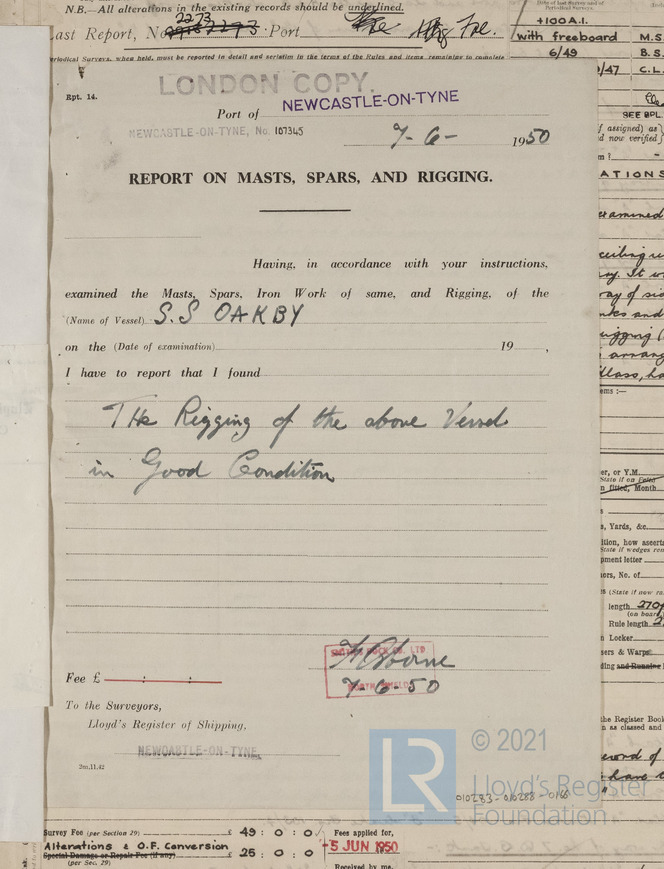 N.B.—All alterations in the existing records should be underlined.
Last Report, No. 2273 Port
Periodical Surveys, when held, must be reported in detail and seriatim in the terms of the Rules and items remaining to complete
+100A.1.
with freeboard
6/49
M.S.
B.S.
C.L.
LONDON COPY.
Rpt. 14.
Port of NEWCASTLE-ON-TYNE
NEWCASTLE-ON-TYNE, No. 107345
7-6- 1950
REPORT ON MASTS, SPARS, AND RIGGING.
Having, in accordance with your instructions,
examined the Masts, Spars, Iron Work of same, and Rigging, of the
(Name of Vessel) S.S OAKBY
on the (Date of examination) 19 ,
I have to report that I found
THe Rigging of the above Vessel
in Good Condition
Fee £ : :
7-6-50
To the Surveyors,
Lloyd's Register of Shipping,
NEWCASTLE-ON-TYNE.
2m.11.42
LR © 2021
Lloyd's Register
Foundation
010283-010288-0168
Survey Fee (per Section 29) £ 49 : 0 : 0
Fees applied for,
Alterations & O.F. Conversion
-5 JUN 1950
Special Damage or Repair Fee (if any) £ 25 : 0 : 0
(per Sec. 29)
Received by me,